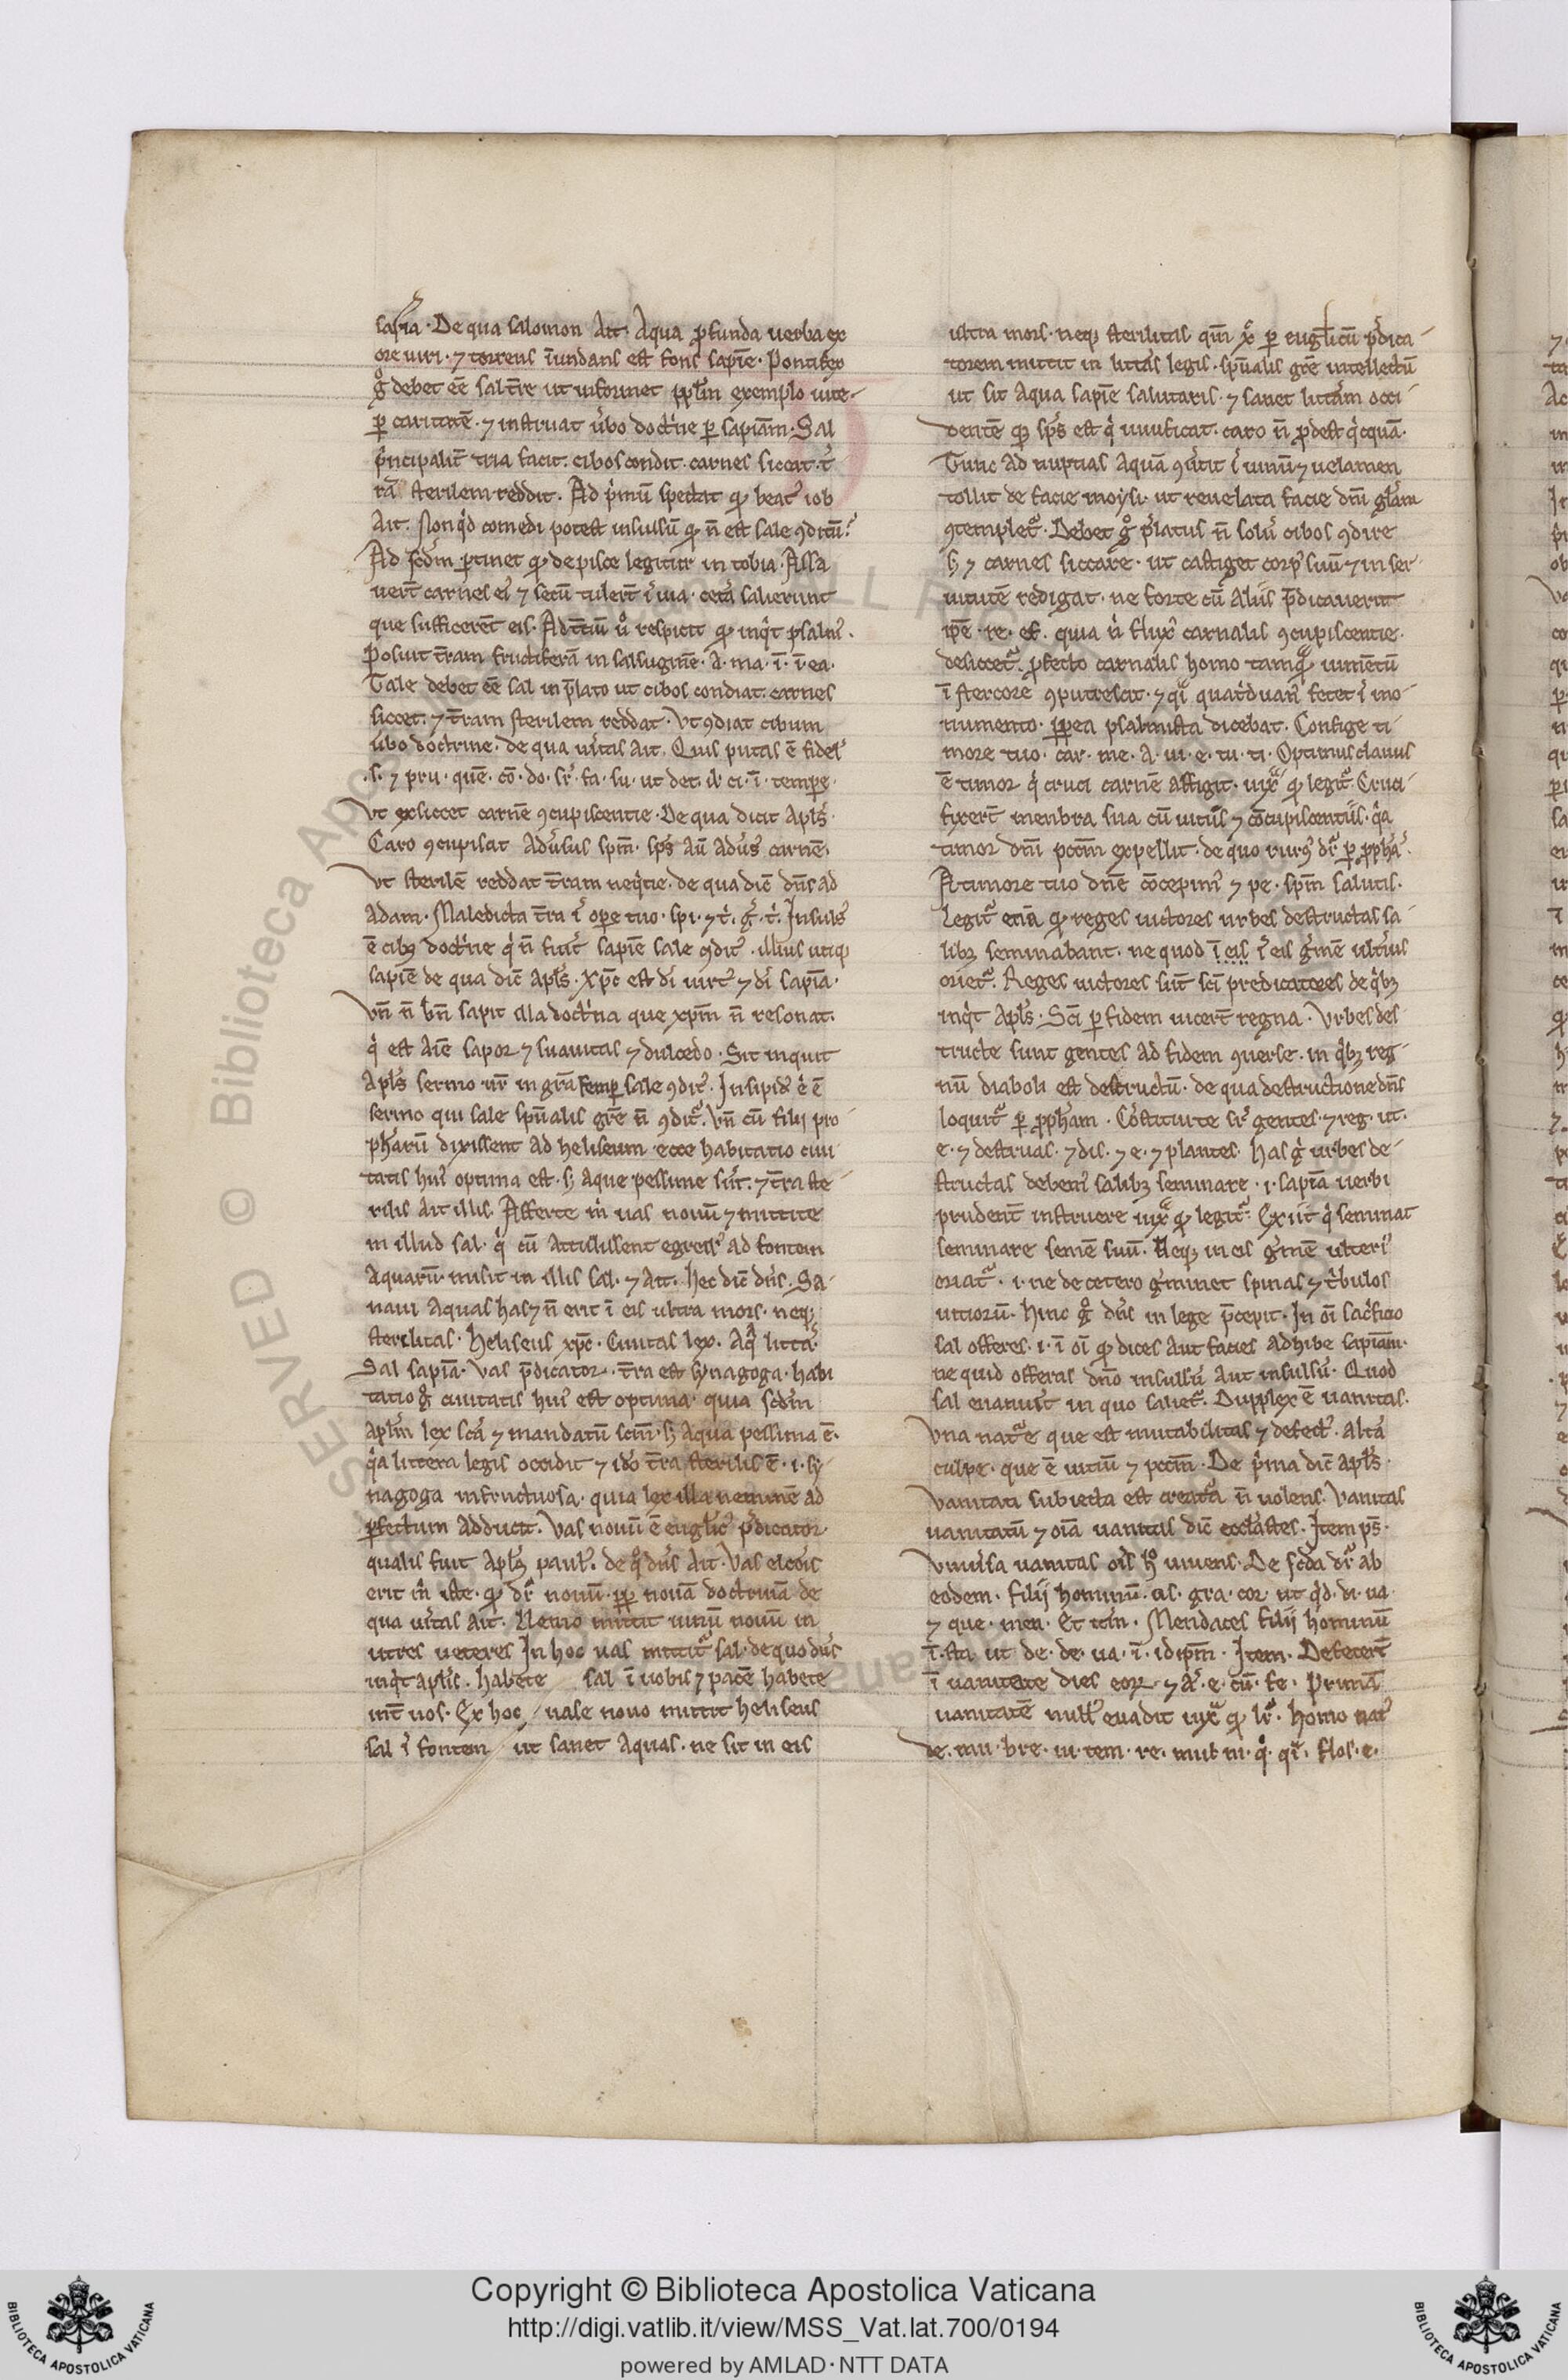 sapīa. De qua salomon Ait. Aqua ꝓfunda uerba ex
ore uiri. ⁊ torrens īundans est fons sapīe. Pontifex
gͦ debet eē sal t̄re ut informet pplm̄ exemplo uite.
ꝑ caritatē. ⁊ instruat ūbo doctͥne ꝑ sapīam. Sal
pͥncipalit̄ tria facit. cibos condit. carnes siccat. t̄
rā sterilem reddit. Ad pͥmū spectat qꝫ beatꝰ iob
Ait. Nonqͥd comedi potest insulsū qꝫ n̄ est sale ꝯditū.
Ad scd̄m ꝑtinet qꝫ de pisce legitur in tobia. Assa
uert̄ carnes eiꝰ ⁊ secū tulert̄ ī uia. cetā salierunt
que sufficerēt eis. Ad t̄tiū uͦ respicit qꝫ inqͥt psalmꝰ.
Posuit t̄ram fructiferā in salsuginē. A. ma. ī. ī. ea.
Tale debet eē sal in p̄lato ut cibos condiat. carnes
siccet. ⁊ t̄ram sterilem reddat. Vt ꝯdiat cibum
ūbo doctrine. de qua uītas Ait. Quis putas ē fidelꝰ
.s. ⁊ pru. quē. cō. do. sꝛ. fa. su. ut det. il. ci. ī. tempe.
Vt exsiccet carnē ꝯcupiscentie. De qua dicit Apls̄.
Caro ꝯcupiscat Adūsus spm̄. sps̄ aū Adūsꝰ carnē.
Vt sterilē reddat t̄ram neqͥtie. de qua dic̄ dn̄s ad
Adam. Maledicta t̄ra ī oꝑe tuo. spi. ⁊ tͥ. g̃. tͥ. Insulsꝰ
ē cibꝰ doctͥne qͥ n̄ fuīt sapīe sale ꝯditꝰ. illius utiqꝫ
sapīe de qua dic̄ apls̄. Xpc̄ est di uirtꝰ ⁊ di sapīa.
Vn̄ n̄ bn̄ sapit illa doctͥna que xpm̄ n̄ resonat.
qͥ est aīe sapor ⁊ suauitas ⁊ dulcedo. Sit inquit
Apls̄ sermo ur̄ in grā semꝑ sale ꝯditꝰ. Insipidꝰ ē
sermo qui sale spūalis grē n̄ ꝯdit᷑. Vn̄ cū filij pro
phārū dixissent ad heliseum. ecce habitatio ciui
tatis huiꝰ optima est. sꝫ aque pessime sūt. ⁊ t̄ra ste
rilis Ait illis. Afferte mͥ uas nouū ⁊ mittite
in illud sal. qͥ cū Attulissent egressꝰ ad fontem
Aquarū. misit in illis sal. ⁊ Ait. hec dic̄ dn̄s. Sa
naui Aquas has ⁊ n̄ erit ī eis ultra mors. neqꝫ
sterilitas. heliseus xpc̄. Ciuitas lex. Aqͣ littā.
Sal sapīa. Vas p̄dicator. t̄ra est synagoga. habi
tatio gͦ ciuitatis huiꝰ est optima. quia scd̄m
Aplm̄ lex scā ⁊ mandatū scm̄. sꝫ Aqua pessima ē.
qͥa littera legis occidit ⁊ idō t̄ra sterilis ē. i. sy
nagoga infructuosa. quia lex illa neminē ad
ꝑfectum adducit. Vas nouū ē euglicꝰ p̄dicator.
qualis fuit Apls̄ paulꝰ. de qͦ dn̄s Ait. Vas elcōis
erit mͥ iste. qꝫ dr̄ nouū. ꝓp nouā doctrinā de
qua uītas Ait. Nemo mittit uinū nouū in
utres ueteres. In hoc uas mittit᷑ sal. de quo dn̄s
inqͥt aplis̄. habete sal ī uobis ⁊ pacē habete
int̄ uos. Ex hoc uase nouo mittit heliseus
sal ī fontem ut sanet Aquas. ne sit in eis
ultra mors. neqꝫ sterilitas. qm̄ xͨ ꝑ euglicū p̄dica
torem mittit in littās legis. spūalis grē intellectū
ut sit Aqua sapīe salutaris. ⁊ sanet littām occi
dentē qꝫ sps̄ est qͥ uiuificat. caro n̄ ꝓdest qͥcquā.
Tunc ad nuptias Aquā ꝯūtit ī uinū ⁊ uelamen
tollit de facie moysi. ut reuelata facie dn̄i glam
ꝯtemplet᷑. Debet gͦ p̄latus n̄ solū cibos ꝯdire
sꝫ ⁊ carnes siccare. ut castiget corpꝰ suū ⁊ in ser
uitutē redigat. ne forte cū aliis p̄dicauerit
ip̄e. re. ef. quia n̄ fluxꝰ carnalis ꝯcupiscentie.
desiccet᷑. ꝓfecto carnalis homo tamqͣ iumētū
ī stercore ꝯputrescit. ⁊ qͣi quatͥduanꝰ fetet ī mo
numento. ꝓpea psalmista dicebat. Confige ti
more tuo. car. me. A. iu. e. tu. ti. Optimus clauus
ē timor qͥ cruci carnē affigit. iuxͣ qꝫ legit᷑. Cruci
fixert̄ menbra sua cū uitiis ⁊ cōcupiscentiis. qͥa
timor dn̄i pctm̄ expellit. de quo rursꝰ dr̄ ꝑ ꝓphā.
A timore tuo dn̄e cōcepimꝰ ⁊ pe. spm̄ salutis.
Legit᷑ etiā qꝫ reges uictores urbes destructas sa
libꝫ seminabant. ne quod ī eis ī eis gͥmē ultiꝰ
oriet᷑. Reges uictores sūt sci predicatores de qͥbꝫ
inqͥt Apls̄. Sci ꝑ fidem uicert̄ regna. Vrbes des
tructe sunt gentes ad fidem ꝯuerse. in qͥbꝫ reg
nū diaboli est destructū. de qua destructione dn̄s
loquit᷑ ꝑ ꝓpham. Cōstitui te sꝛ gentes. ⁊ reg. ut.
e. ⁊ destruas. ⁊ dis. ⁊ e. ⁊ plantes. has gͦ urbes de
structas debemꝰ salibꝫ seminare. i. sapīa uerbi
prudent̄ instruere iuxͣ qꝫ legit᷑. Exiit qͥ seminat
seminare semē suū. Neqꝫ in eis gͥmē ulteriꝰ
oriat᷑. i. ne de cetero gͥminet spinas ⁊ tͥbulos
uitiorū. hinc gͦ dn̄s in lege p̄cepit. In oī sacͥficio
sal offeres. i. ī oī qꝫ dices aut facies adhibe sapīam.
ne quid offeras dn̄o insulsū Aut insulsū. Quod
sal euanuīt in quo saliet᷑. Dupplex ē uanitas.
Vna natͣe que est mutabilitas ⁊ defectꝰ. Altā
culpe. que ē uitiū ⁊ pctm̄. De pͥma dic̄ apls̄.
Vanitati subiecta est creatͣa n̄ uolens. Vanitas
uanitatū ⁊ oīa uanitas dic̄ eccl̄astes. Item ps̄.
Vniūsa uanitas oīs hͦ uiuens. De scd̄a dr̄ ab
eodem. filij hominū. us. gra. cor. ut qͥd. di. ua.
⁊ que. men. Et itm̄. Mendaces filij hominū
ī. sta. ut de. de. ua. ī. idipm̄. Item. Defecert̄
ī uanitate dies eoꝝ. ⁊ ā. e. cū. fe. Primā
uanitatē nullꝰ euadit iuxͣ qꝫ lr̄. homo natꝰ
de. mu. bre. ui. tem. re. mul. m. qͥ. qͣi. flos. e.
Copyright © Biblioteca Apostolica Vaticana
http://digi.vatlib.it/view/MSS_Vat.lat.700/0194
powered by AMLAD·NTT DATA